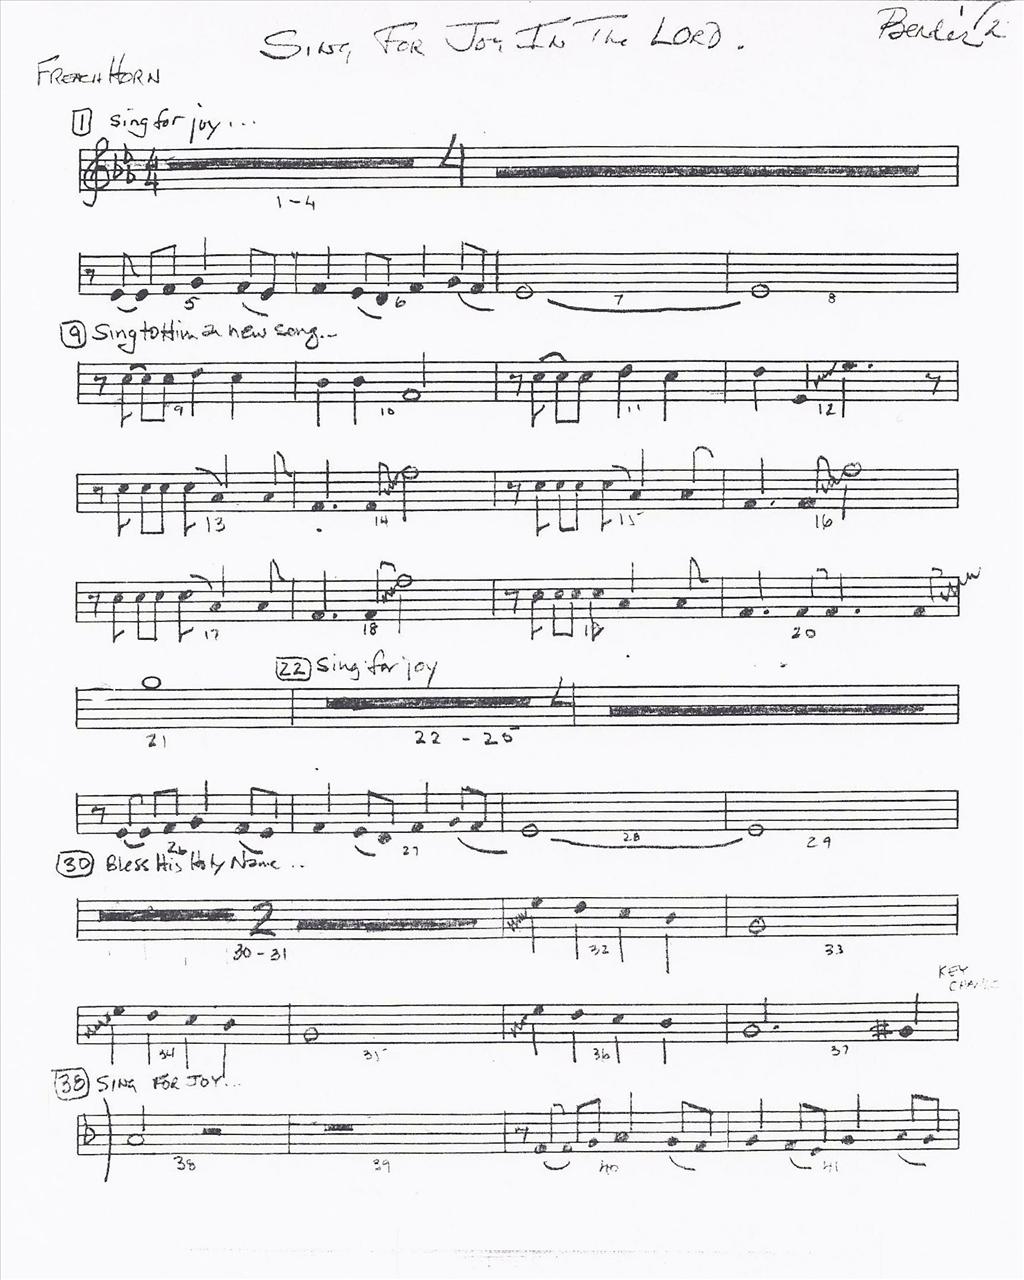 SING FOR JOY IN THE LORD.
FRENCH HORN
1 Sing for joy...
4
4
4
1-4
5 6 7 8
9 Sing to Him a new song...
9 10 11 12
13 14 15 16
17 18 19 20
22 Sing for joy
4
21 22 - 25
26 27 28 29
30 Bless His Holy Name..
2
30-31 32 33
KEY CHANGE
34 35 36 37
38 SING FOR JOY...
38 39 40 41